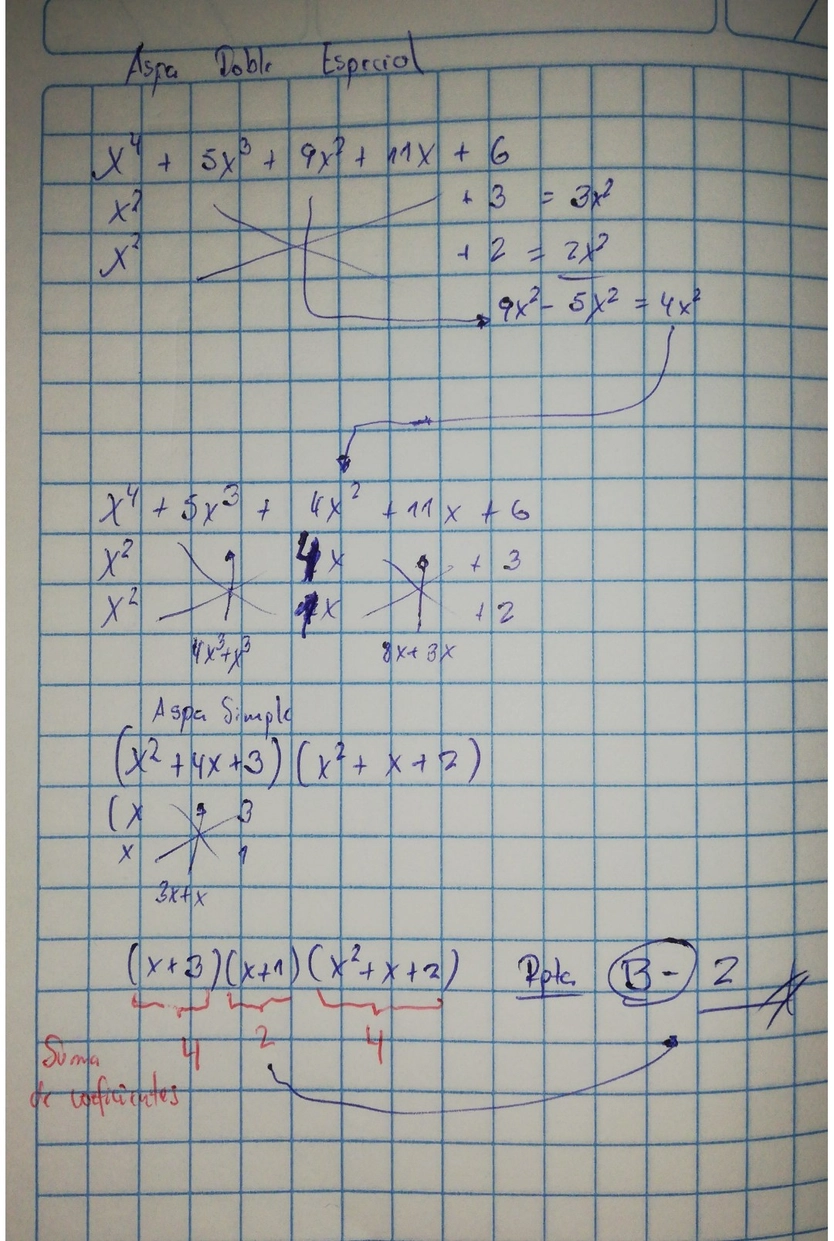 Aspa Doble Especial
x⁴ + 5x³ + 9x² + 11x + 6
x² + 3 = 3x²
x² + 2 = 2x²
9x² - 5x² = 4x²
x⁴ + 5x³ + 4x² + 11x + 6
x² 4x + 3
x² 1x + 2
4x³+x³ 8x+3x
Aspa Simple
(x² + 4x + 3) (x² + x + 2)
(x 3
x 1
3x+x
(x+3)(x+1)(x²+x+2) Rpta B- 2
4 2 4
Suma
de coeficientes